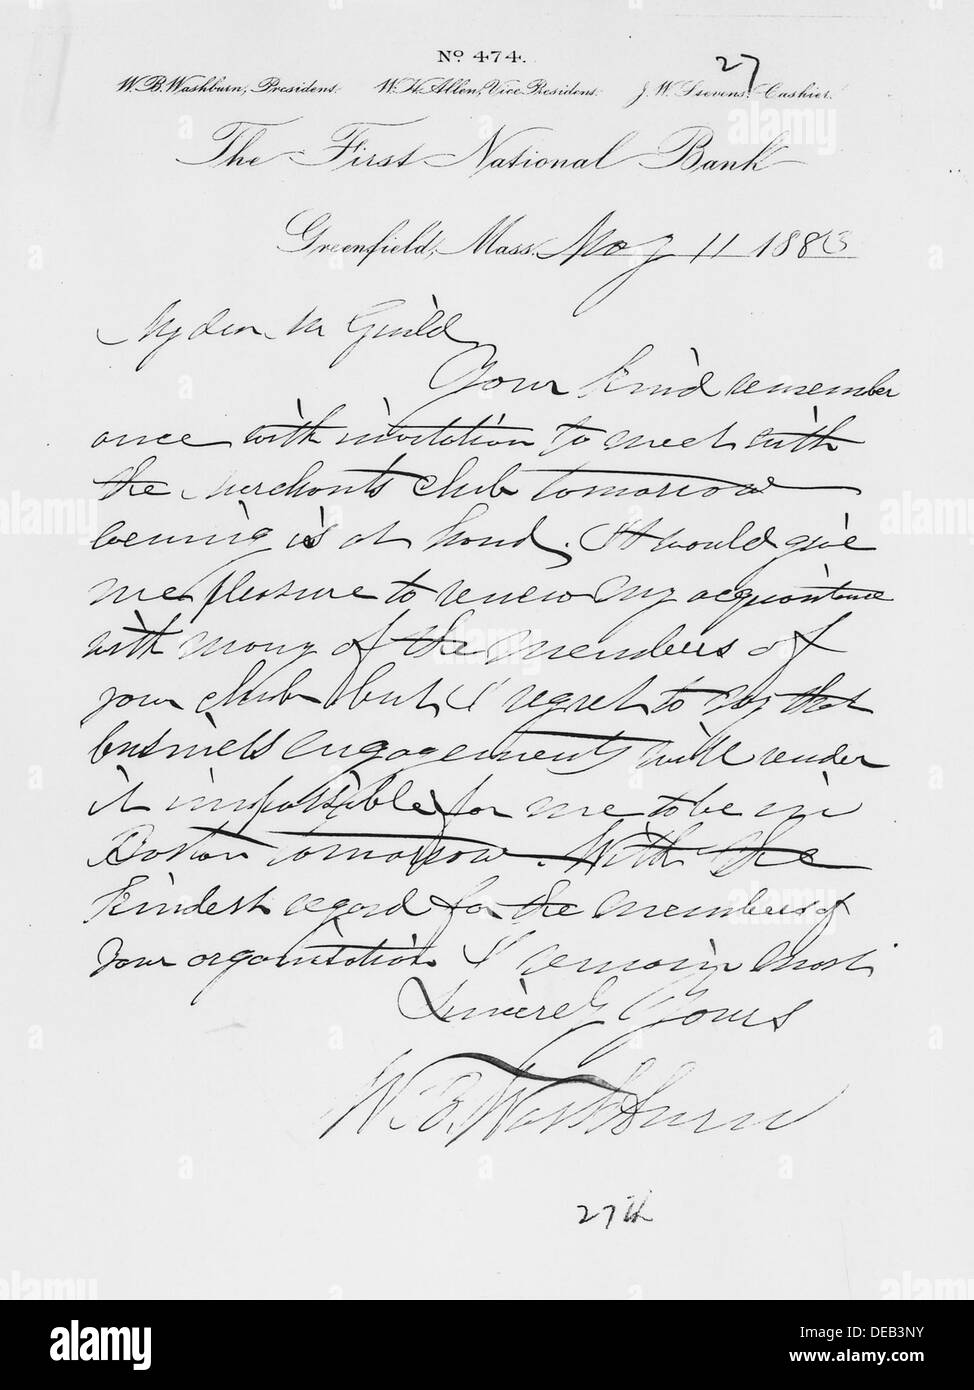 No. 474.
27
W. B. Washburn, President. W. H. Allen, Vice President. J. W. Stevens, Cashier.
The First National Bank
Greenfield, Mass. May 11 1883
My dear Mr Guild
Your kind remember
ance with invitation to meet with
the Merchants club tomorrow
evening is at hand. It would give
me pleasure to renew my acquaintance
with many of the members of
your club but I regret to say that
business engagements will render
it impossible for me to be in
Boston tomorrow. With the
kindest regard for the members of
your organisation I remain most
Sincerely Yours
W. B. Washburn
27th
alamy
alamy stock photo
DEB3NY
www.alamy.com